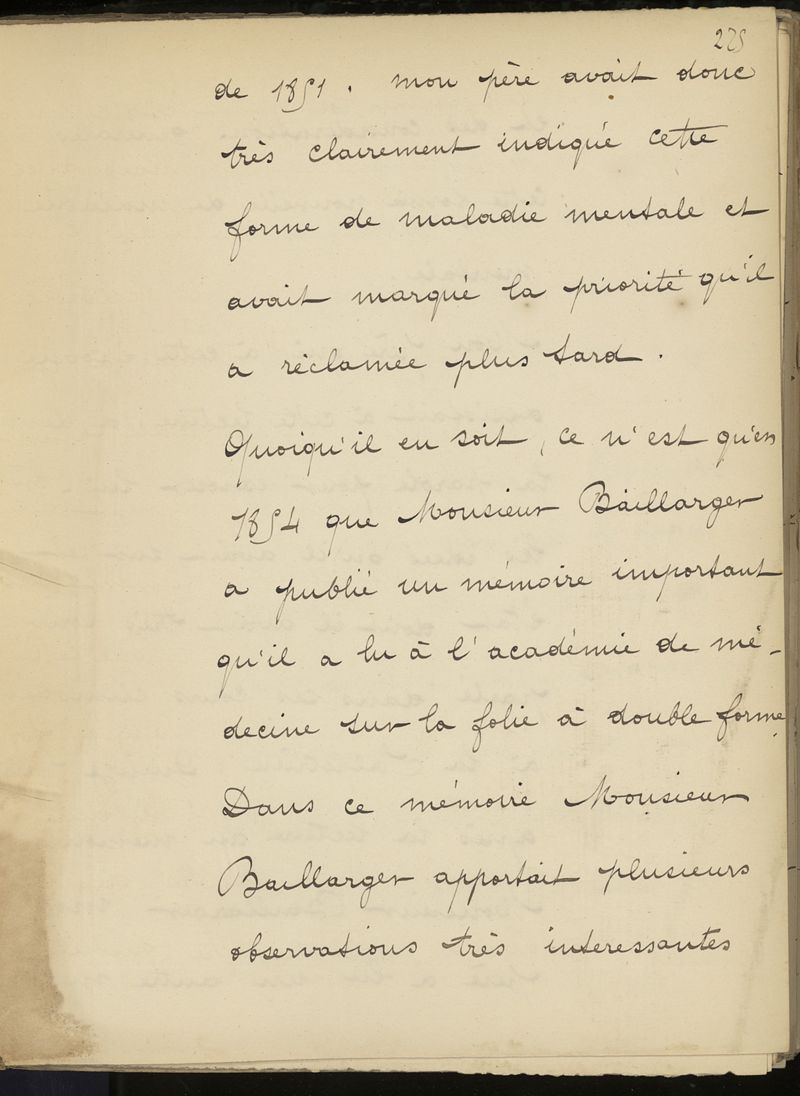 225
de 1851. mon père avait donc
très clairement indiqué cette
forme de maladie mentale et
avait marqué la priorité qu'il
a réclamée plus tard.
Quoiqu'il en soit, ce n'est qu'en
1854 que Monsieur Baillarger
a publié un mémoire important
qu'il a lu à l'académie de mé-
decine sur la folie à double forme.
Dans ce mémoire Monsieur
Baillarger apportait plusieurs
observations très interessantes